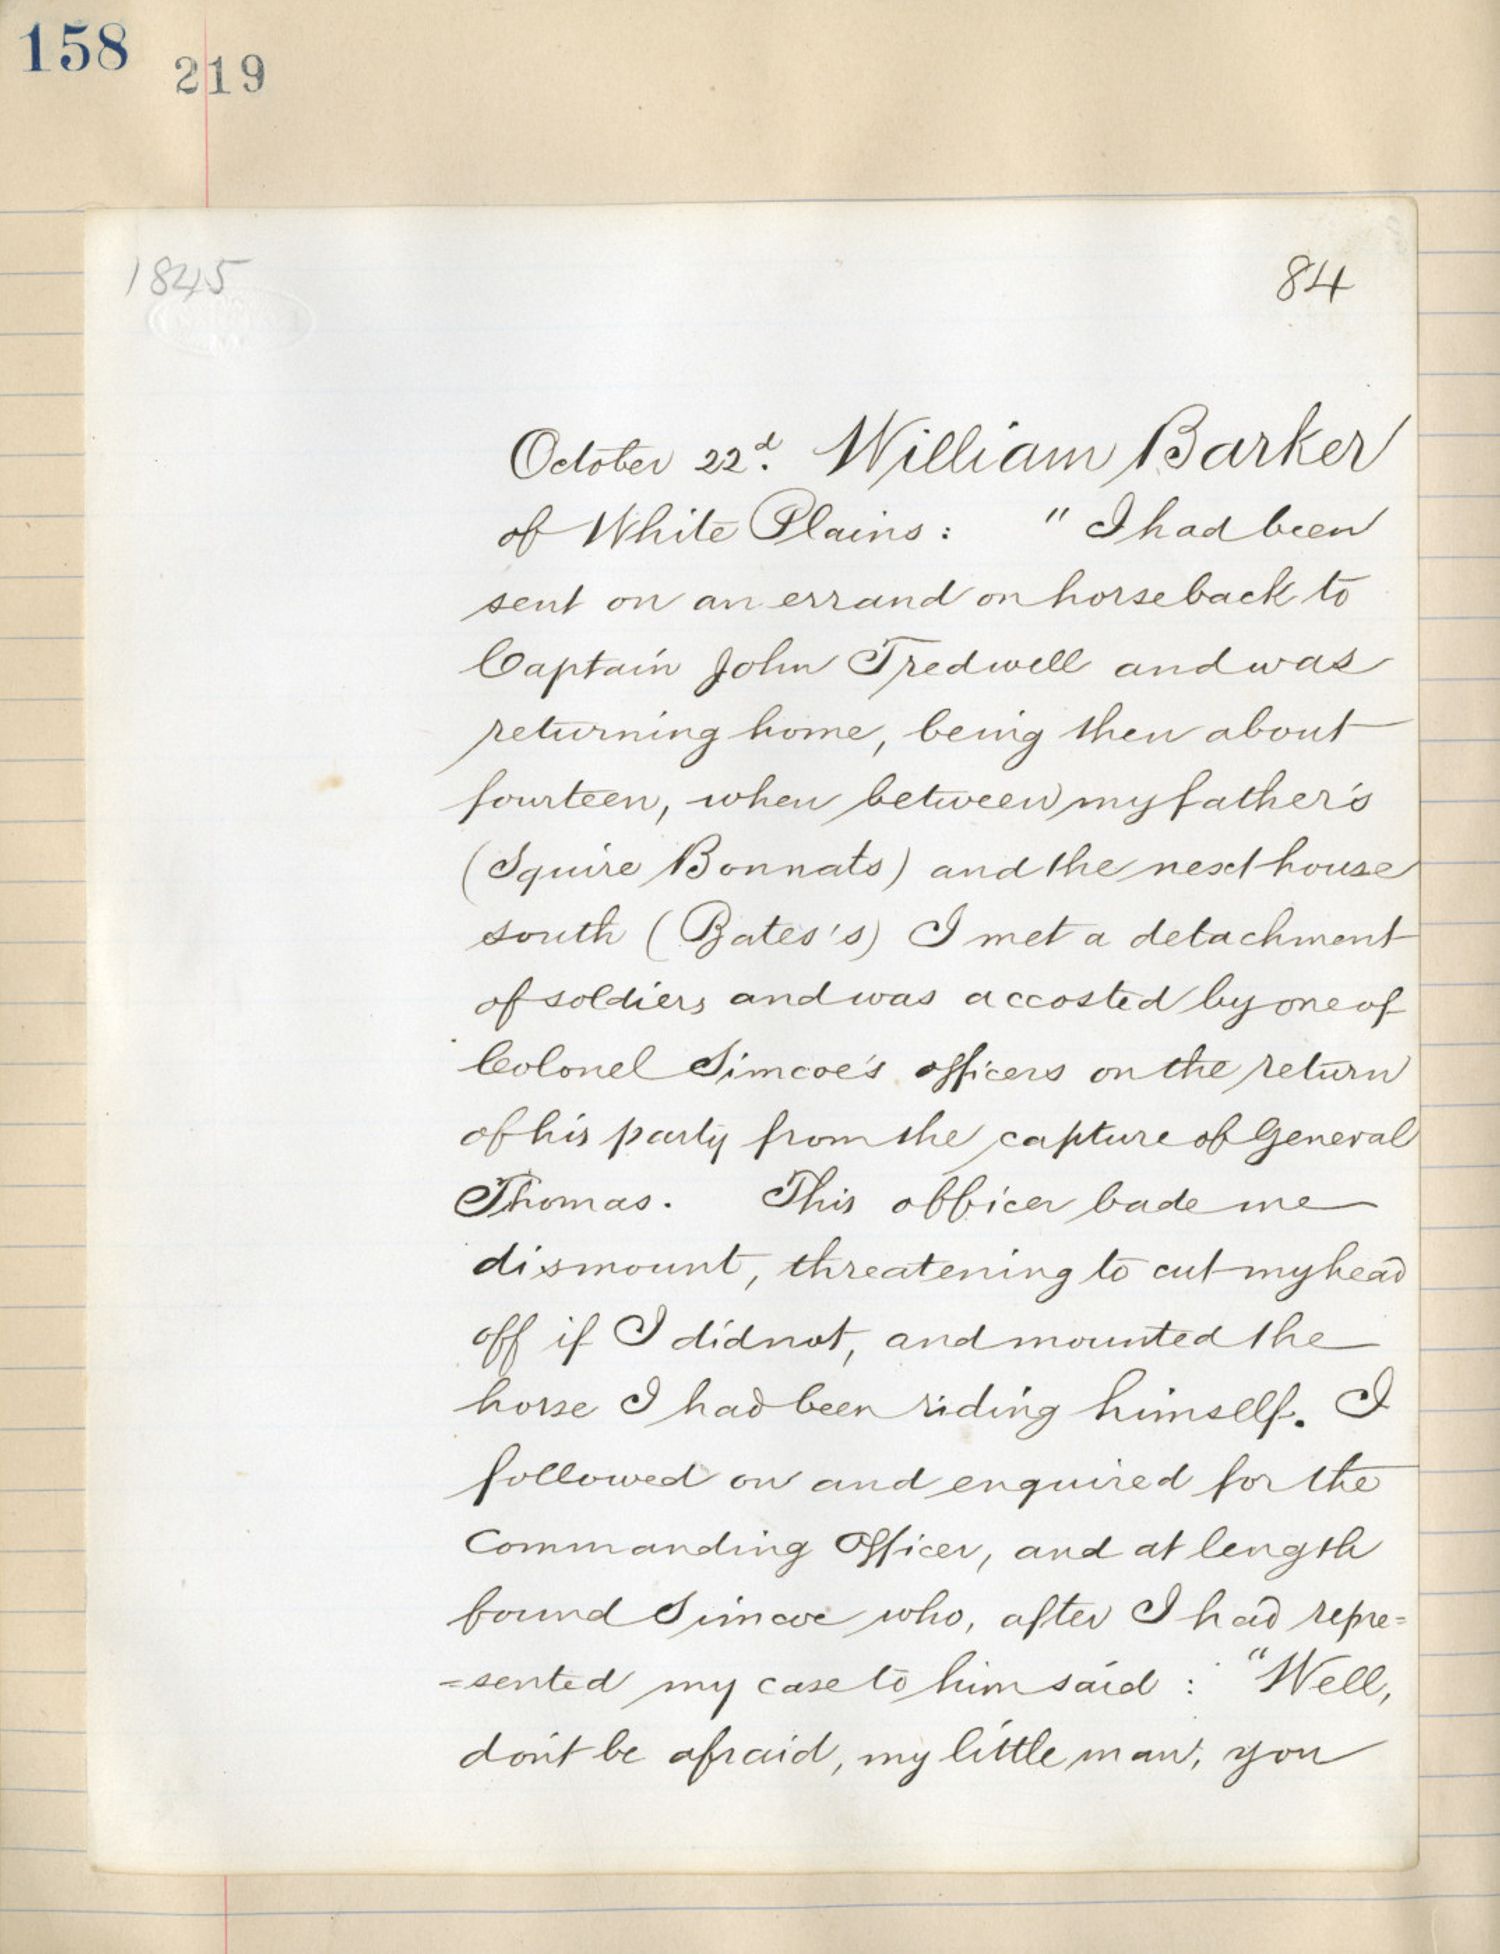 158
219
1845
84
October 22d. William Barker
of White Plains: "I had been
sent on an errand on horseback to
Captain John Tredwell and was
returning home, being then about
fourteen, when between my father's
(Squire Bonnats) and the next house
south (Bates's) I met a detachment
of soldiers and was accosted by one of
Colonel Simcoe's officers on the return
of his party from the capture of General
Thomas. This officer bade me
dismount, threatening to cut my head
off if I did not, and mounted the
horse I had been riding himself. I
followed on and enquired for the
Commanding Officer, and at length
found Simcoe who, after I had repre=
=sented my case to him said: "Well,
don't be afraid, my little man, you